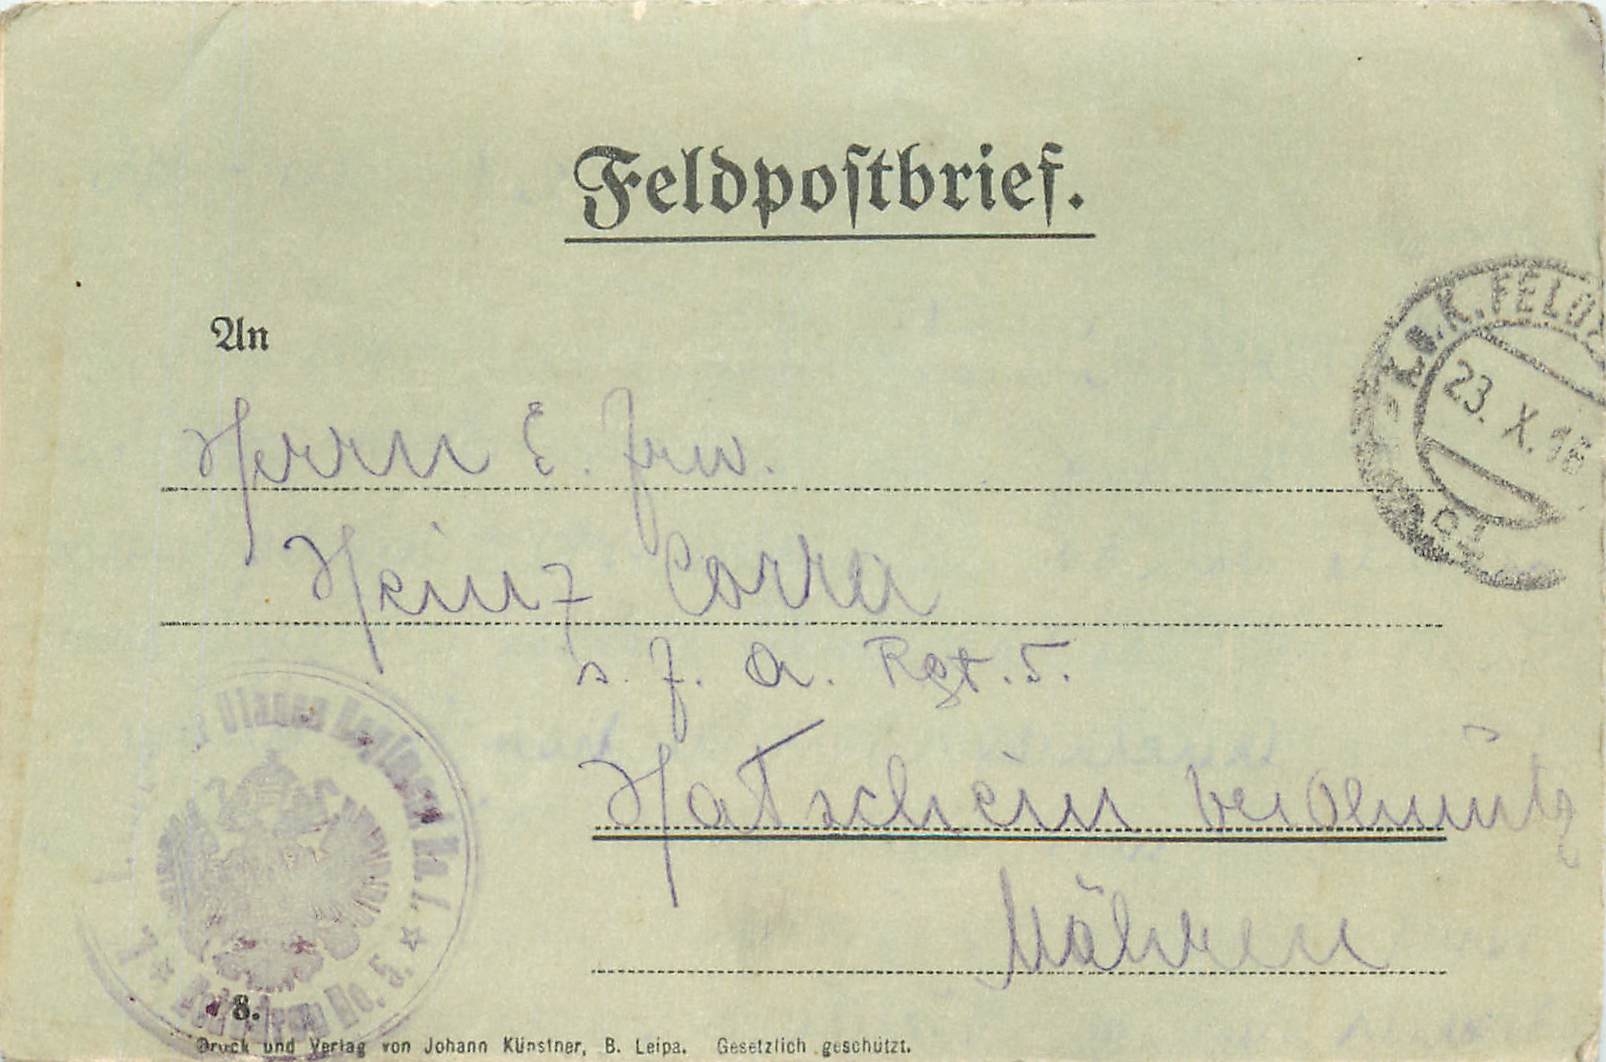 Feldpostbrief.
An
Herrn E. Frw.
Heinz Corra
s. F. A. Rgt. 5.
Hatschein bei Olmütz
Mähren
K.u.K. FELDP
23. X. 16
Ulanen Regiment No. 1.
Eskadron No. 3
8.
Druck und Verlag von Johann Künstner, B. Leipa. Gesetzlich geschützt.